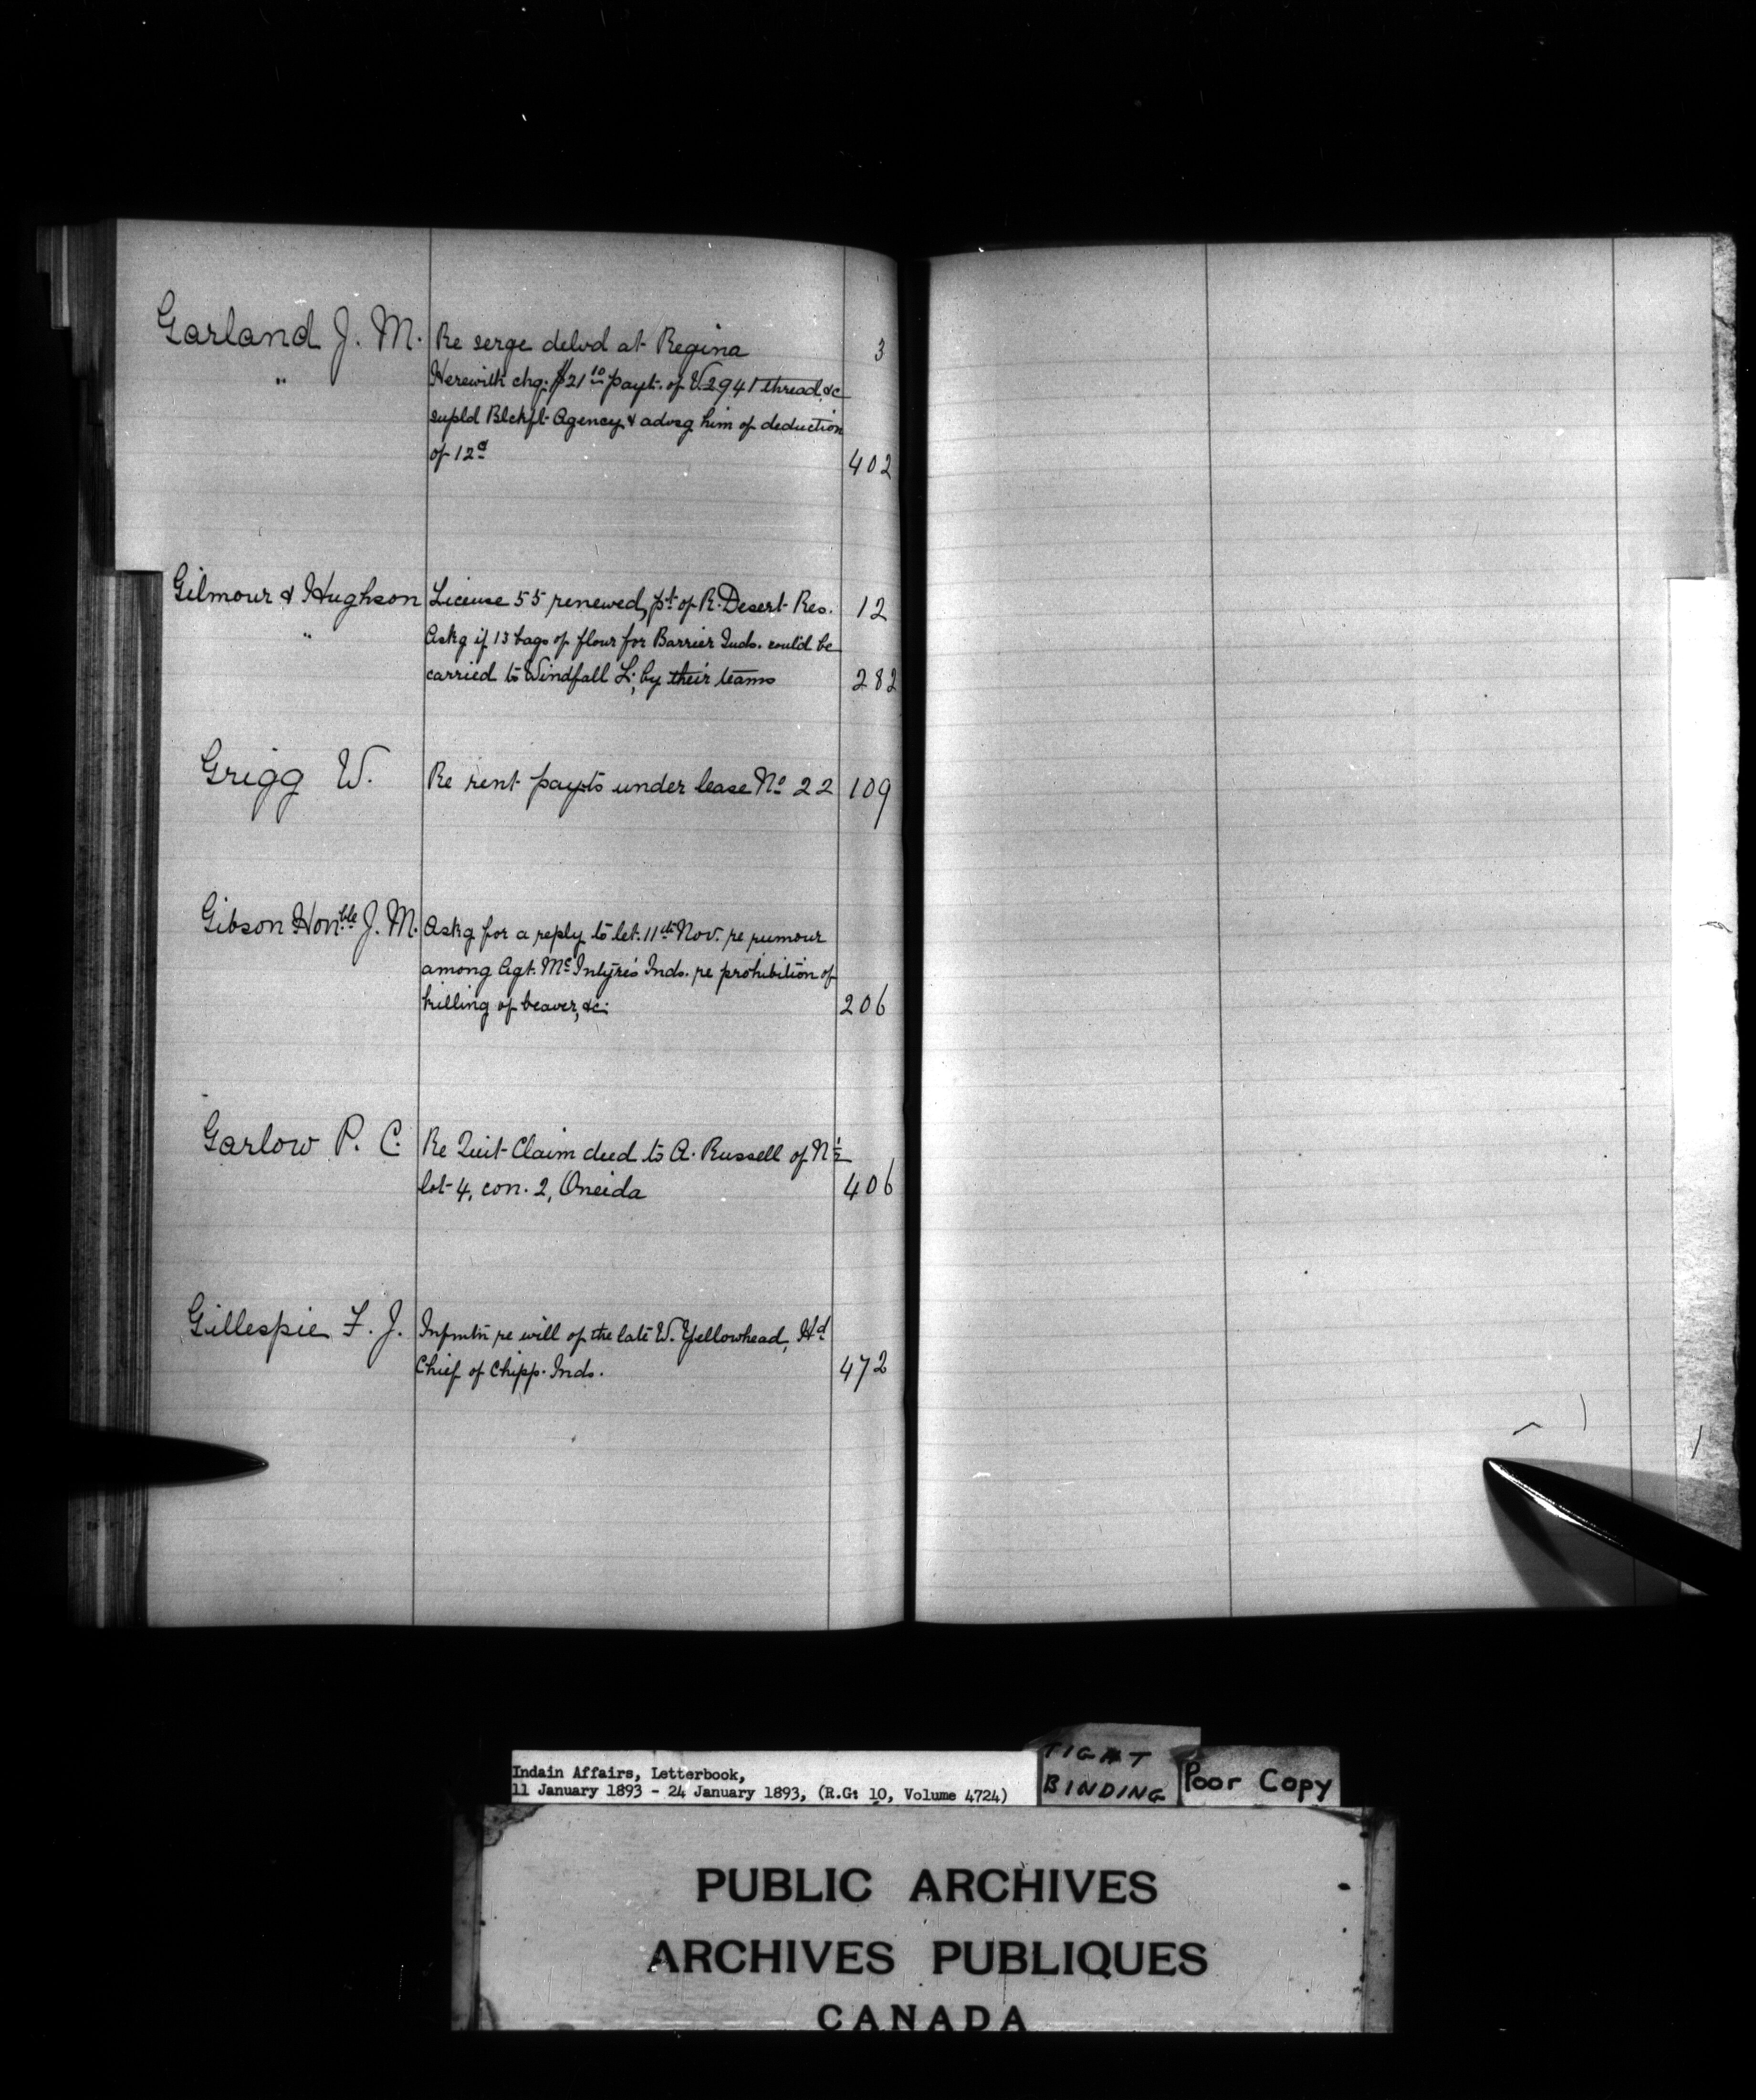 Garland J. M. Re serge delvd at Regina 3
" Herewith chq. $21 10 payt. of V.2941 thread &c
supld Blckft Agency & advsg him of deduction
of 12c 402
Gilmour & Hughson License 55 renewed, pt of R. Desert Res. 12
" Askg if 13 bags of flour for Barrier Inds. could be
carried to Windfall L; by their teams 282
Grigg W. Re rent payts under lease No 22 109
Gibson Honble J. M. Askg for a reply to let. 11th Nov. re rumour
among Agt. McIntyre's Inds. re prohibition of
killing of beaver, &c. 206
Garlow P. C. Re Quit Claim deed to A. Russell of N ½
lot 4, con. 2, Oneida 406
Gillespie F. J. Infmtn re will of the late W. Yellowhead, Hd
Chief of Chipp. Inds. 472
Indain Affairs, Letterbook,
11 January 1893 - 24 January 1893, (R.G: 10, Volume 4724)
TIGHT
BINDING
Poor Copy
PUBLIC ARCHIVES
ARCHIVES PUBLIQUES
CANADA